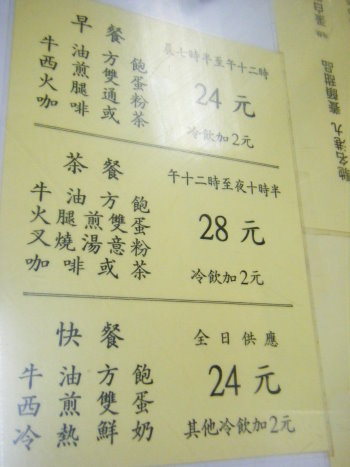 早餐
牛油方飽
西煎雙蛋
火腿通粉
咖啡或茶
晨七時半至午十二時
24元
冷飲加2元
茶餐
牛油方飽
火腿煎雙蛋
叉燒湯意粉
咖啡或茶
午十二時至夜十時半
28元
冷飲加2元
快餐
牛油方飽
西煎雙蛋
冷熱鮮奶
全日供應
24元
其他冷飲加2元
馳名港九
甜品
蛋白